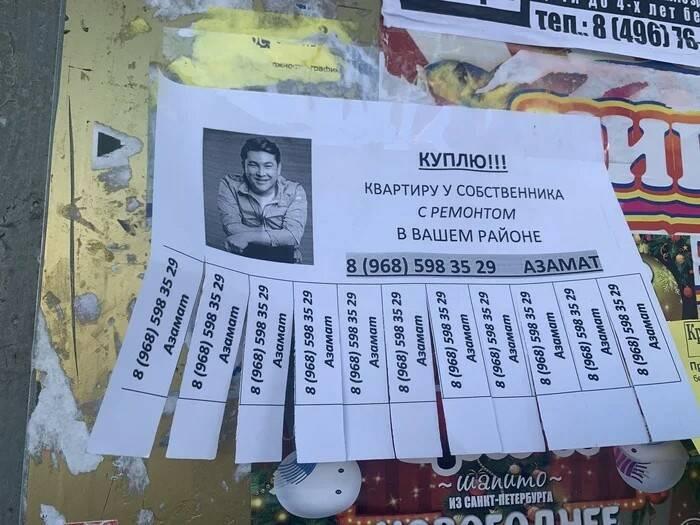 тел.: 8 (496) 76-
КУПЛЮ!!!
КВАРТИРУ У СОБСТВЕННИКА
С РЕМОНТОМ
В ВАШЕМ РАЙОНЕ
8 (968) 598 35 29 АЗАМАТ
8 (968) 598 35 29
Азамат
8 (968) 598 35 29
Азамат
8 (968) 598 35 29
Азамат
8 (968) 598 35 29
Азамат
8 (968) 598 35 29
Азамат
8 (968) 598 35 29
Азамат
8 (968) 598 35 29
Азамат
8 (968) 598 35 29
Азамат
8 (968) 598 35 29
Азамат
8 (968) 598 35 29
Азамат
8 (968) 598 35 29
Азамат
~шапито~
ИЗ САНКТ-ПЕТЕРБУРГА
НОВОГОДНЕЕ